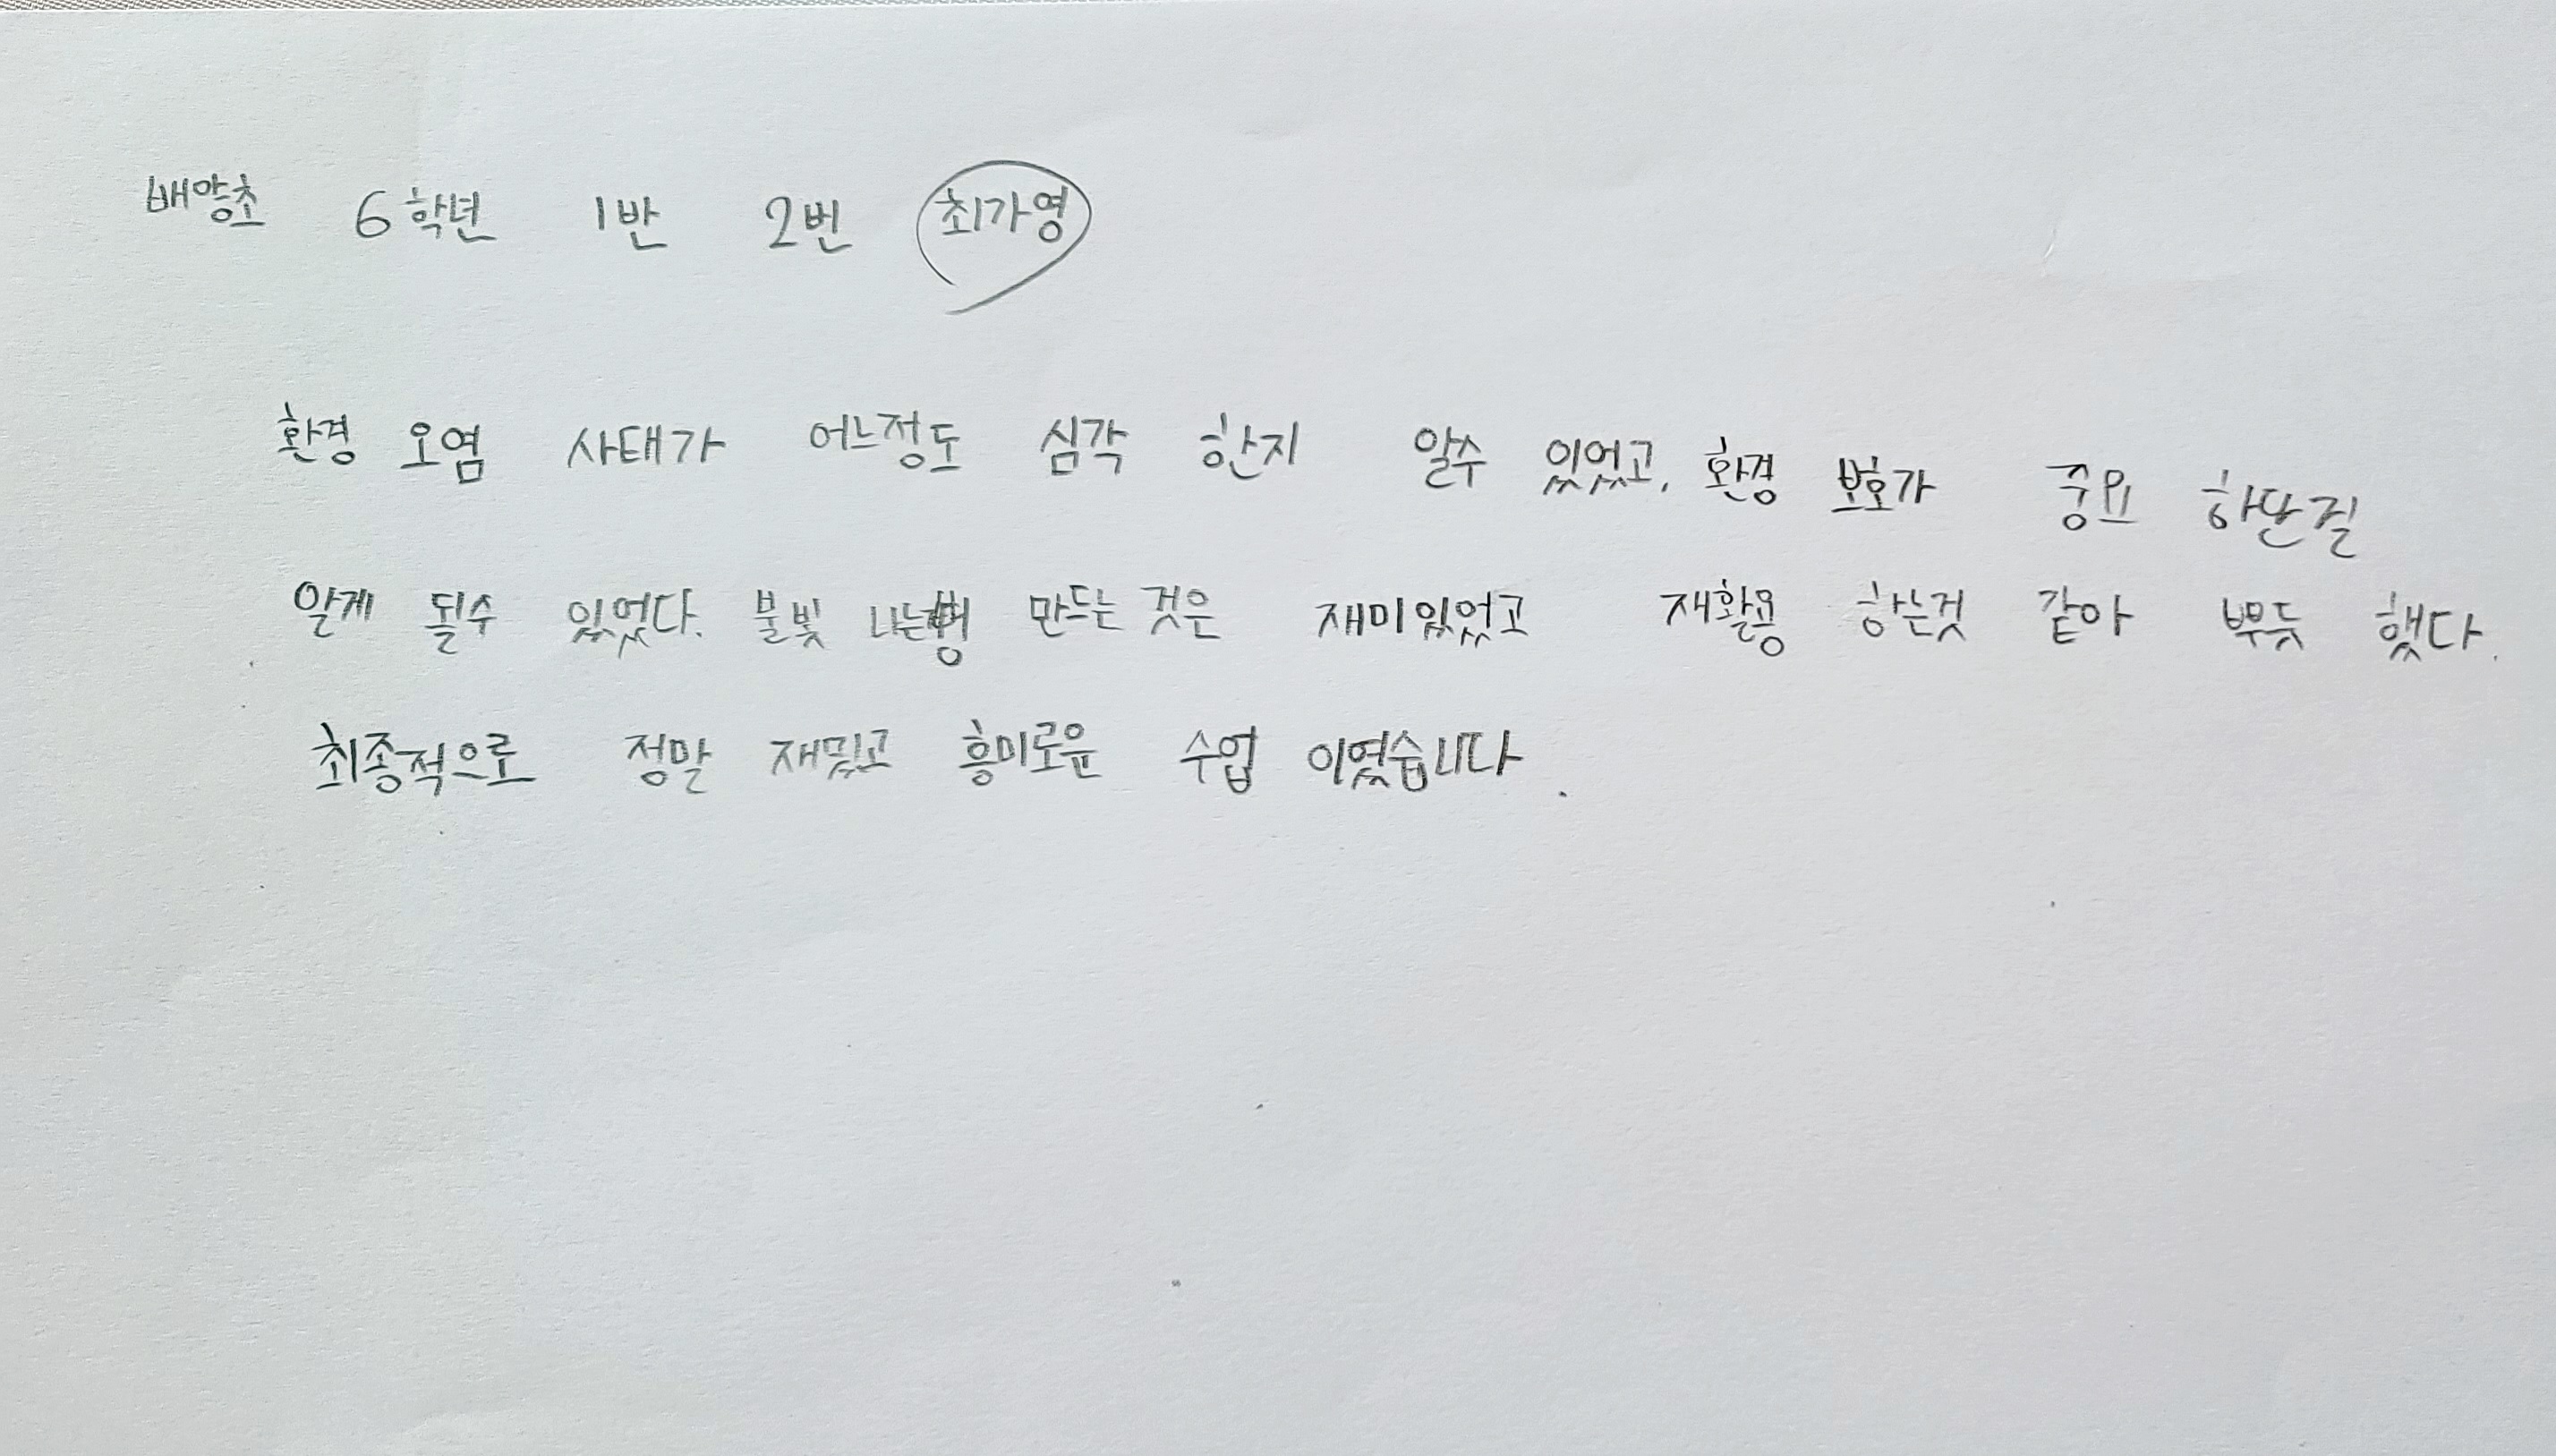 배양초 6학년 1반 2번 최가영
환경 오염 사태가 어느정도 심각 한지 알수 있었고, 환경 보호가 중요 하단질
알게 될수 있었다. 불빛 나는병 만드는 것은 재미있었고 재활용 하는것 같아 뿌듯 했다.
최종적으로 정말 재밌고 흥미로운 수업 이였습니다.